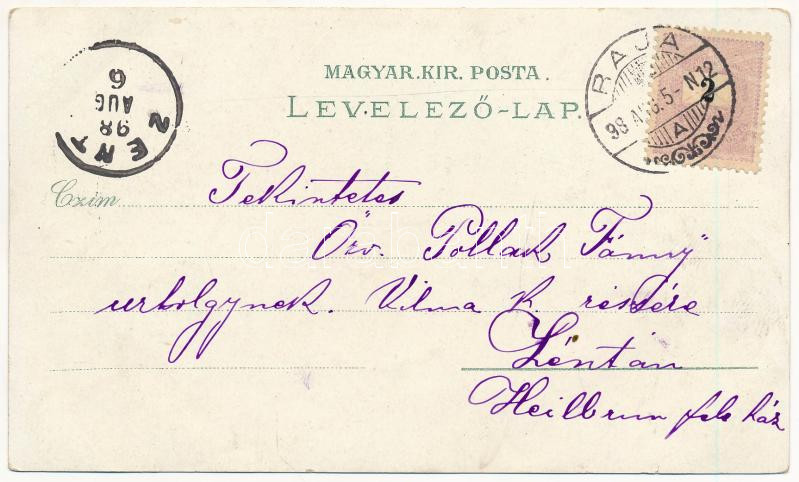 MAGYAR.KIR. POSTA.
LEVELEZŐ-LAP.
ZENTA
98
AUG
6
BAJA
98 AUG. 5- N12
A
2
Czím
Tekintetes
Özv. Pollak Fánny
urhölgynek. Vilma k. részére
Zentán
Heilbrun féle ház